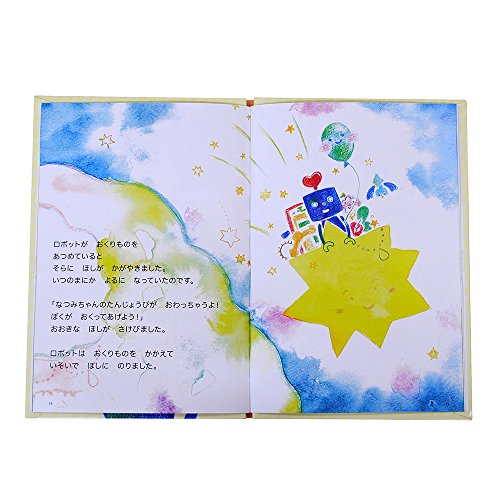 ロボットが　おくりものを
あつめていると
そらに　ほしが　かがやきました。
いつのまにか　よるに　なっていたのです。
「なつみちゃんのたんじょうびが　おわっちゃうよ！
ぼくが　おくってあげよう！」
おおきな　ほしが　さけびました。
ロボットは　おくりものを　かかえて
いそいで　ほしに　のりました。